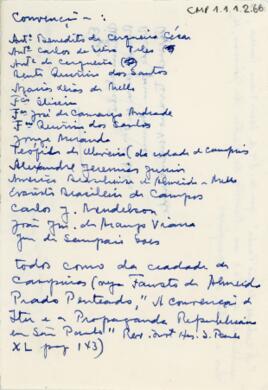 CMP 1.1.1.2.66
Convenção - :
Antº Benedicto de Cerqueira César
Antº Carlos da Silva Teles
Antº de Cerqueira
Bento Quirino dos Santos
Elias de Mello
Fcº Glicerio
Fcº José de Camargo Andrade
Fcº Quirino dos Santos
Jorge Miranda
Teófilo de Oliveira (da cidade de Campinas
Alexandre Jeremias Junior
Americo Brasiliense de Almeida e Mello
Evaristo Brasileiro de Campos
Carlos J.
João Jm. de Araujo Viana
Jm. de Sampaio Goes
todos como da cidade de
Campinas (veja Fausto de Almeida
Prado Penteado, "A convenção de
Itu e a Propaganda Republicana
em São Paulo" Rev. Inst His. S. Paulo
XL pag 143)